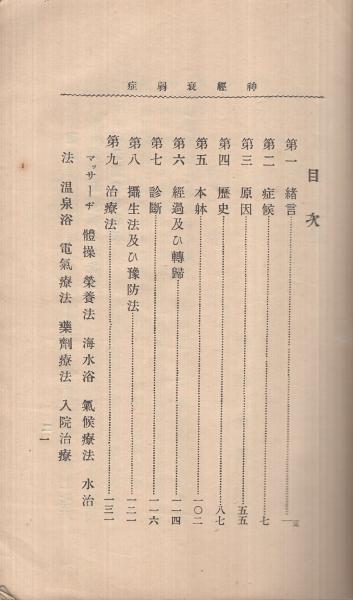 神經衰弱症
目次
第一 緒言 一頁
第二 症候 七
第三 原因 五五
第四 歷史 八七
第五 本躰 一〇二
第六 經過及ひ轉歸 一一四
第七 診斷 一一六
第八 攝生法及ひ豫防法 一二一
第九 治療法 一三一
マッサーヂ 體操 榮養法 海水浴 氣候療法 水治
法 温泉浴 電氣療法 藥劑療法 入院治療